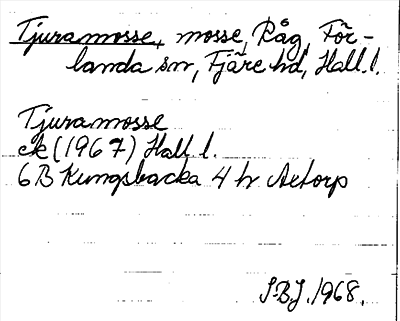 Tjuramosse, mosse, Råg, För-
landa sn, Fjäre hd, Hall. l.
Tjuramosse
ek (1967) Hall l.
6B Kungsbacka 4 h
S.B.J. 1968.